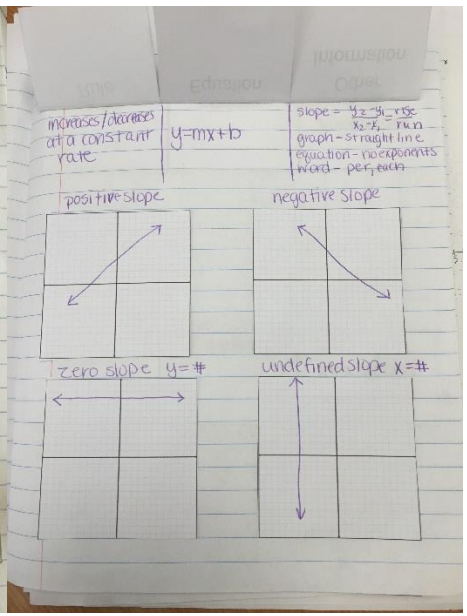 Rule
Equation
Other
Information
increases/decreases
at a constant
rate
y=mx+b
slope = y₂-y₁ = rise
x₂-x₁ run
graph-straight line
equation-no exponents
word- per, each
positive slope
negative slope
zero slope y=#
undefined slope x=#